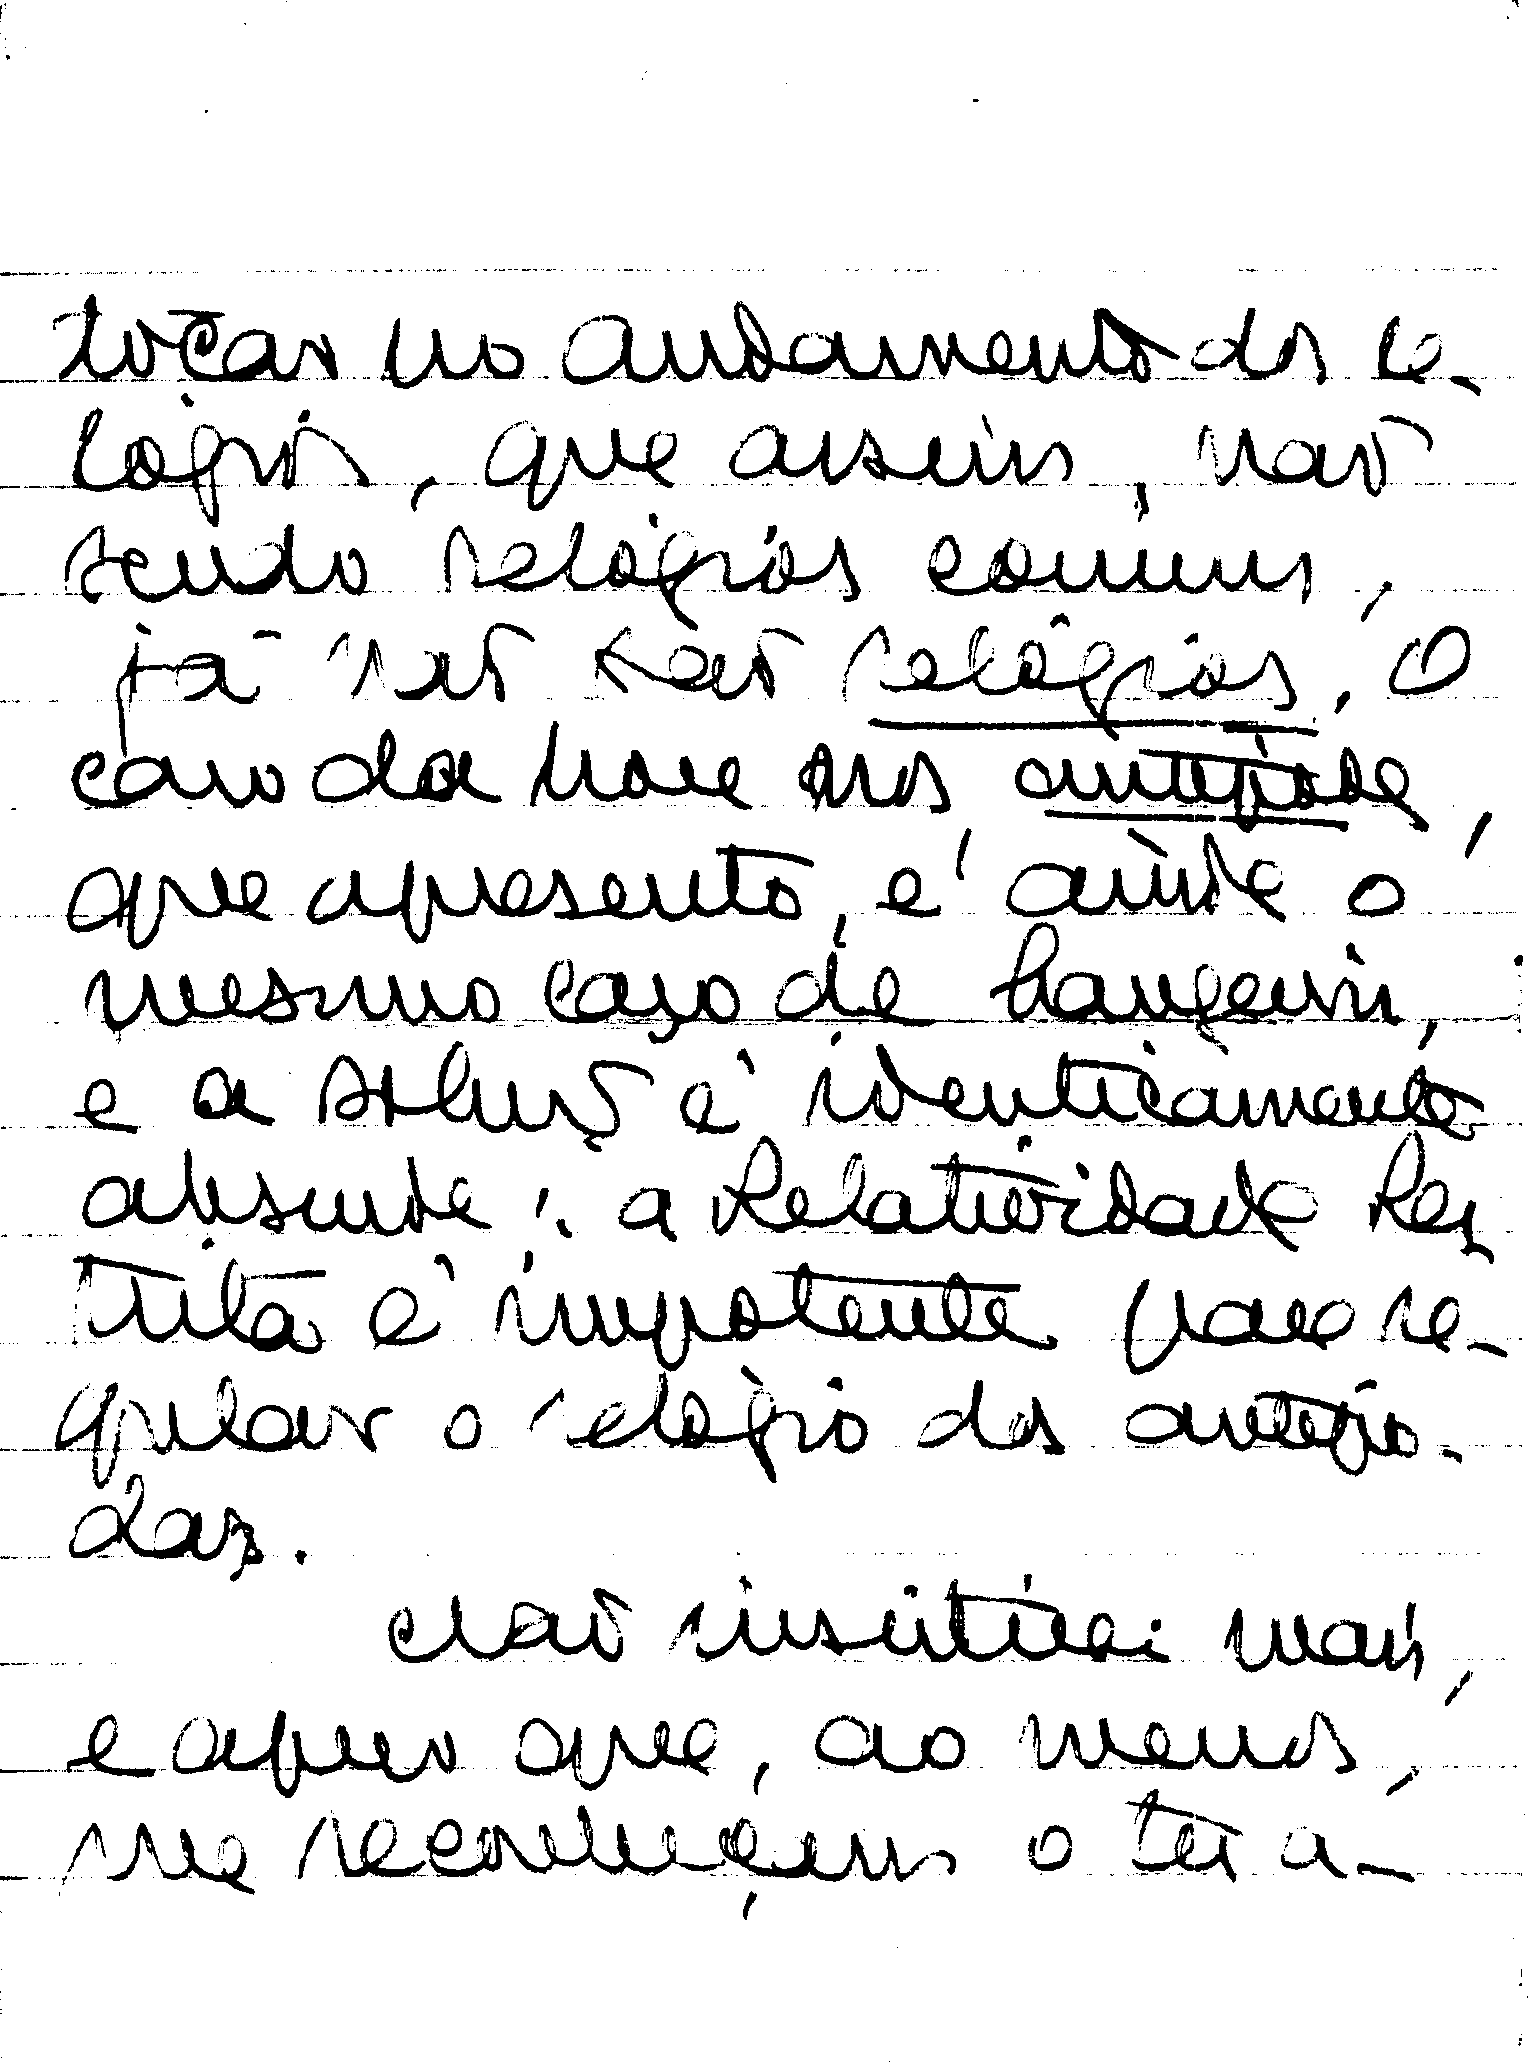 tocar no andamento dos re-
lógios, que assim, não
sendo relógios comuns,
já não são relógios. O
caso da hora nos antípodas,
que apresento, é ainda o
mesmo caso de Langevin,
e a solução é identicamente
absurda: a Relatividade Res
trita é impotente para re-
gular o relógio dos antípo-
das.
Não insistirei mais,
e apuro que, ao menos,
me reconheçam o ter a-